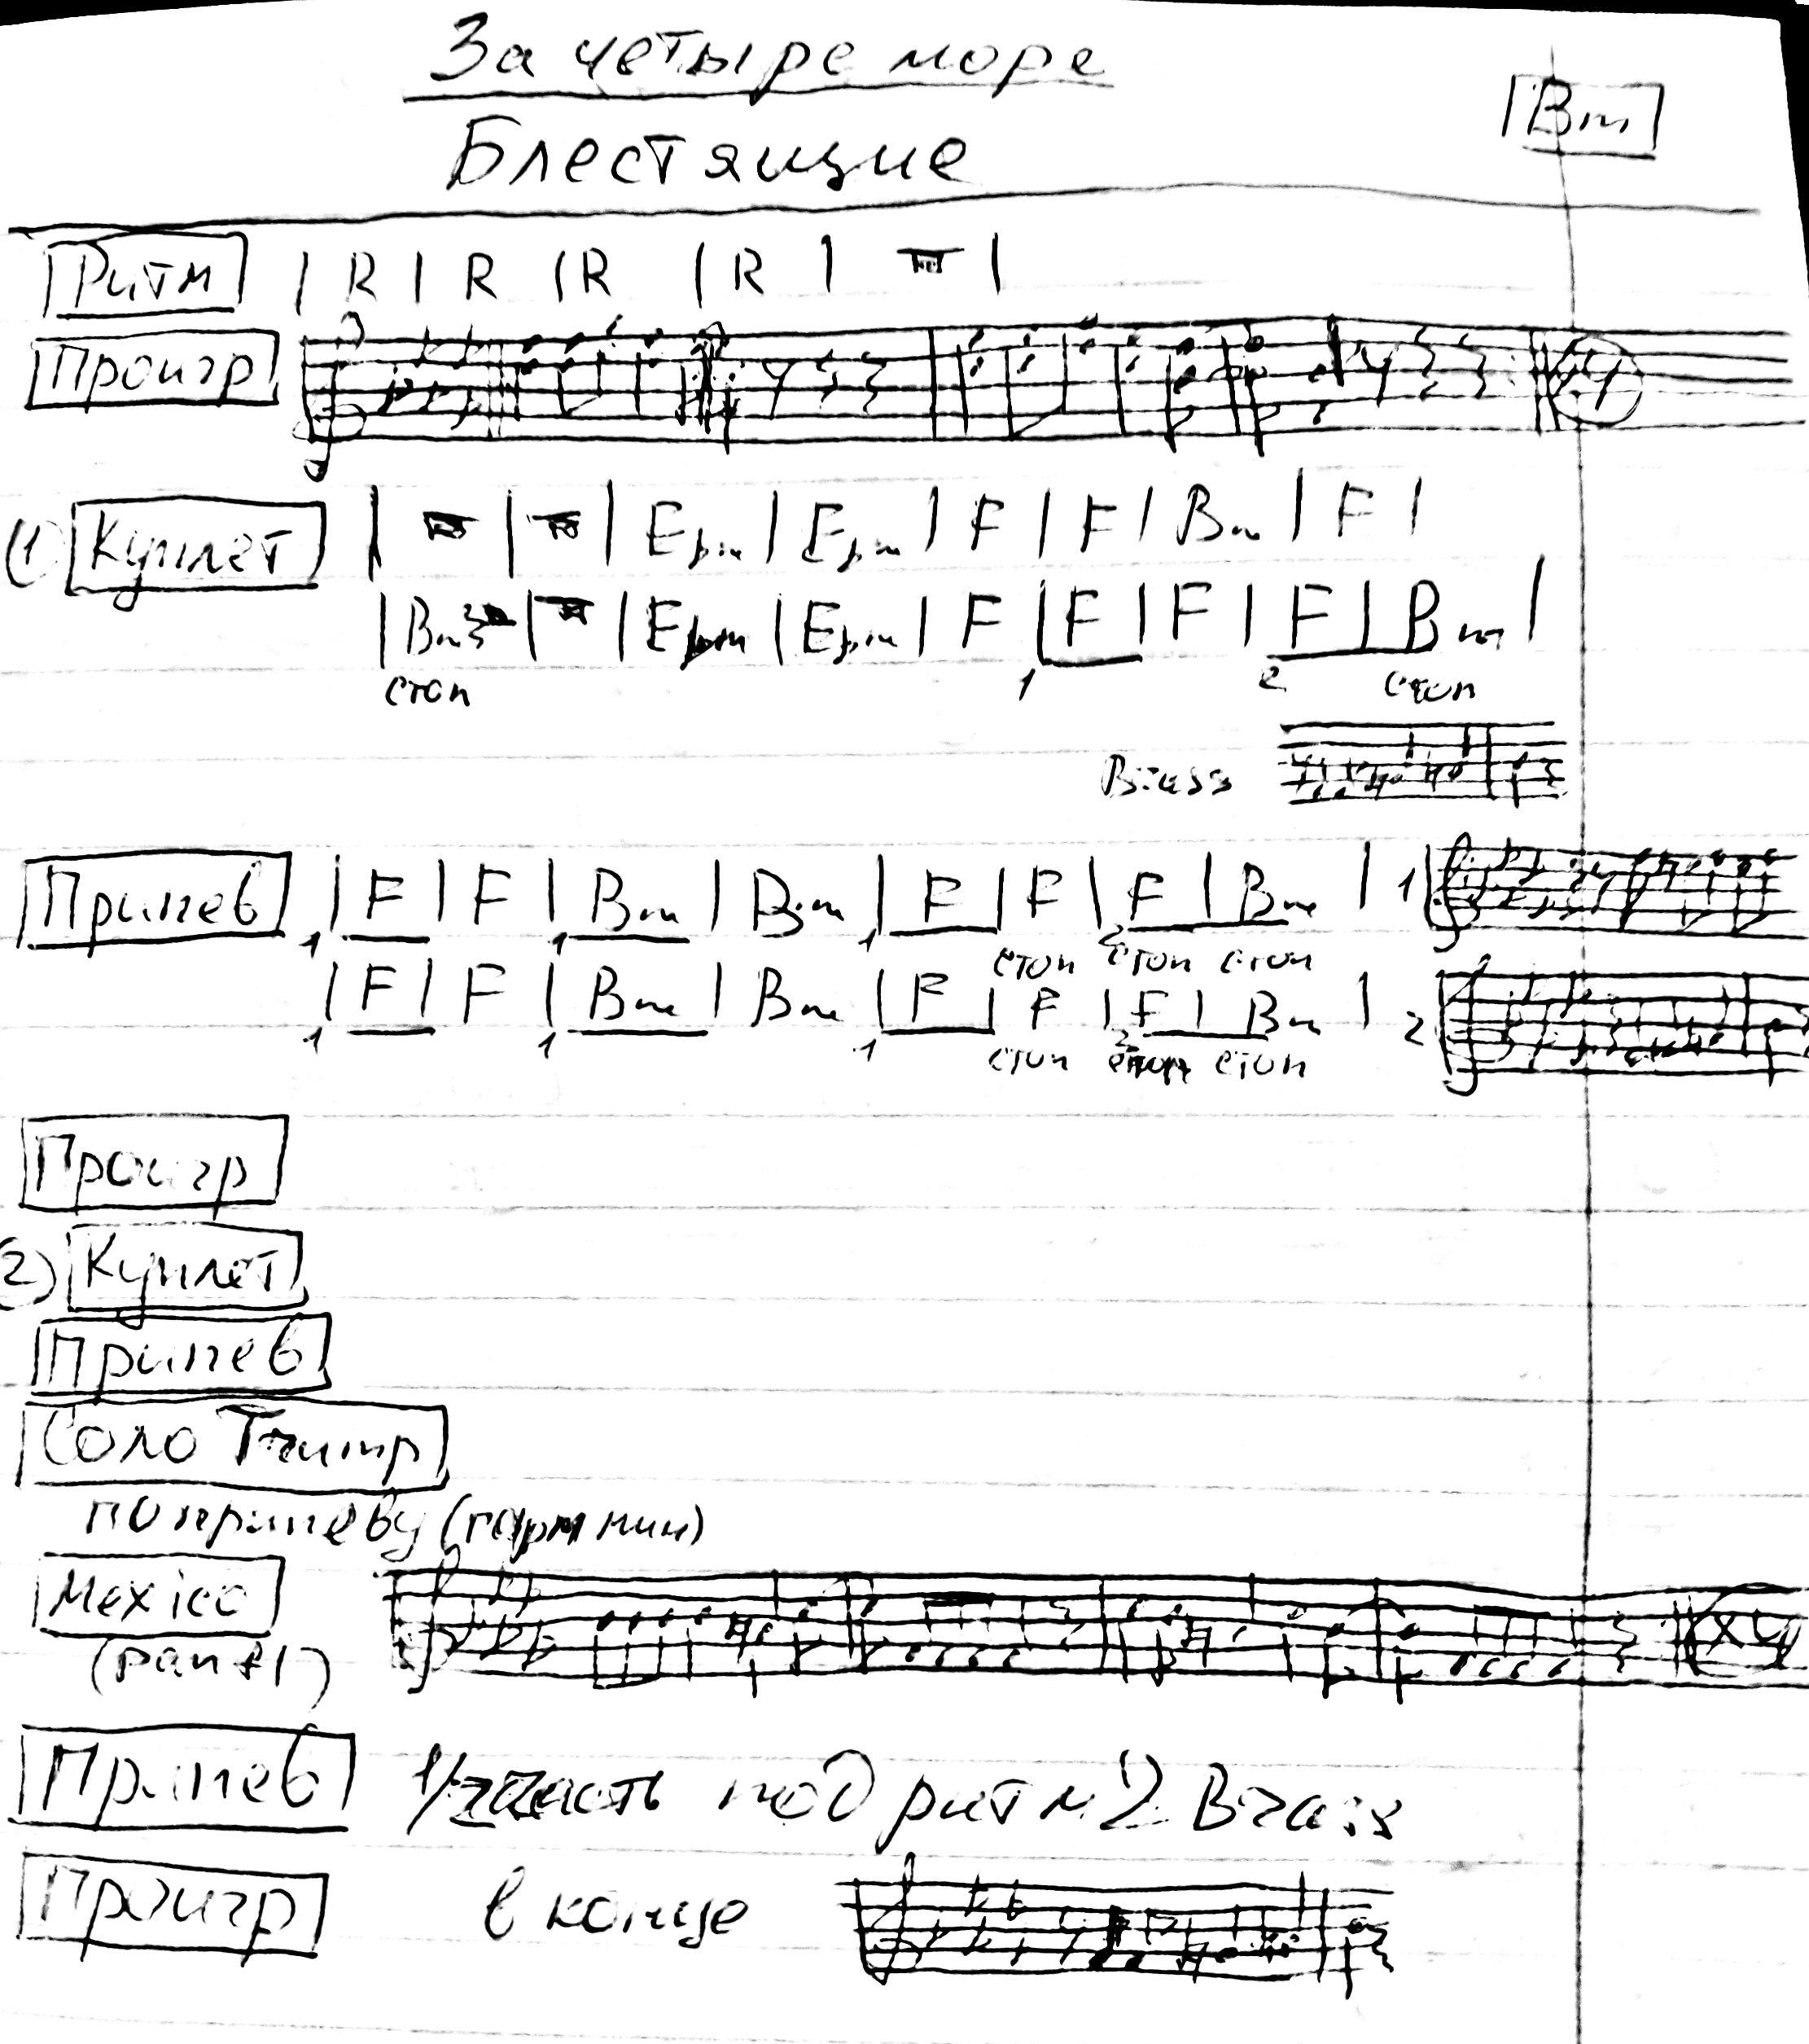 За четыре море
Bm
Блестящие
Ритм | R | R | R | R | |
Проигр
1) Куплет | | | Ebm | Ebm | F | F | Bm | F |
| Bm | | Ebm | Ebm | F | F | F | F | Bm |
стоп 1 2 стоп
Brass
Припев | F | F | Bm | Bm | F | F | F | Bm | 1
1 1 1 стоп 2 стоп стоп
| F | F | Bm | Bm | F | F | F | Bm | 2
1 1 1 стоп 2 стоп стоп
Проигр
2) Куплет
Припев
Соло Trump
по припеву (гарм мин)
Mexico
x4
Припев 1/2 часть под ритм 2 Brass
Проигр в конце